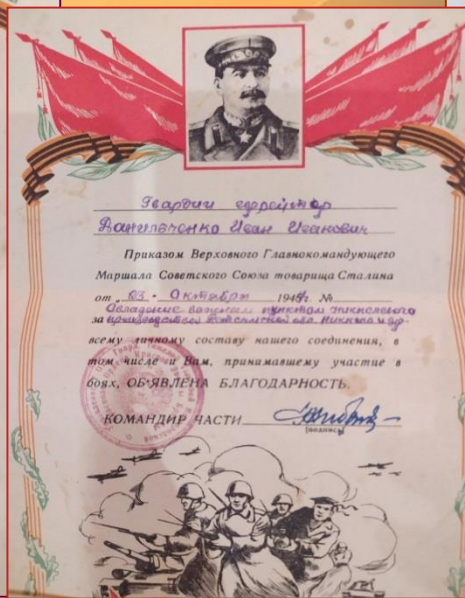 Гвардии ефрейтор
Данильченко Иван Иванович
Приказом Верховного Главнокомандующего
Маршала Советского Союза товарища Сталина
от „03" Октября 194 №
за Овладение важным пунктом
всему личному составу нашего соединения, в
том числе и Вам, принимавшему участие в
боях, ОБ'ЯВЛЕНА БЛАГОДАРНОСТЬ.
КОМАНДИР ЧАСТИ
(подпись)